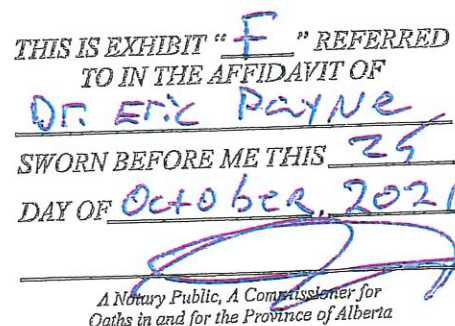 THIS IS EXHIBIT “ F ” REFERRED
TO IN THE AFFIDAVIT OF
Dr. Eric Payne
SWORN BEFORE ME THIS 25
DAY OF October, 2021
A Notary Public, A Commissioner for
Oaths in and for the Province of Alberta